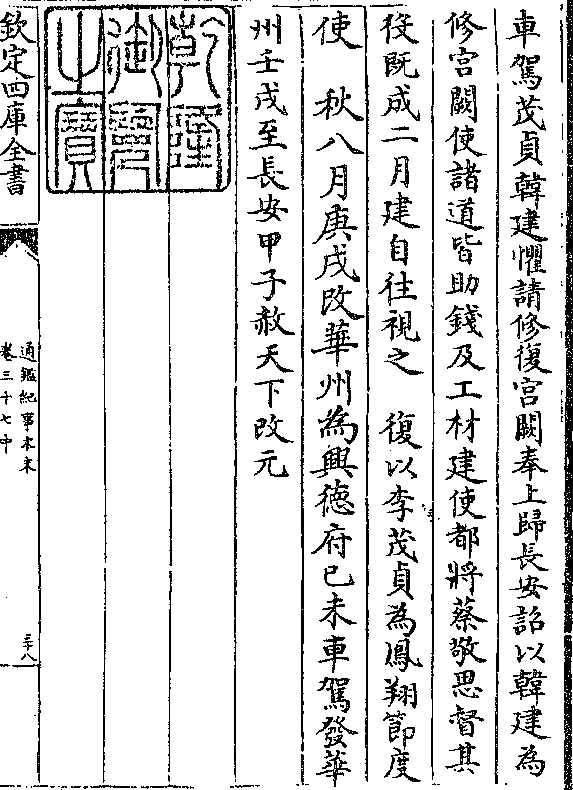 車駕茂貞韓建懼請修復宮闕奉上歸長安詔以韓建為
修宮闕使諸道皆助錢及工材建使都將蔡敬思督其
役既成二月建自往視之　復以李茂貞為鳳翔節度
使　秋八月庚戌改華州為興德府已未車駕發華
州壬戌至長安甲子赦天下改元
乾隆御覽之寶
欽定四庫全書
通鑑紀事本末
卷三十七中
三十八